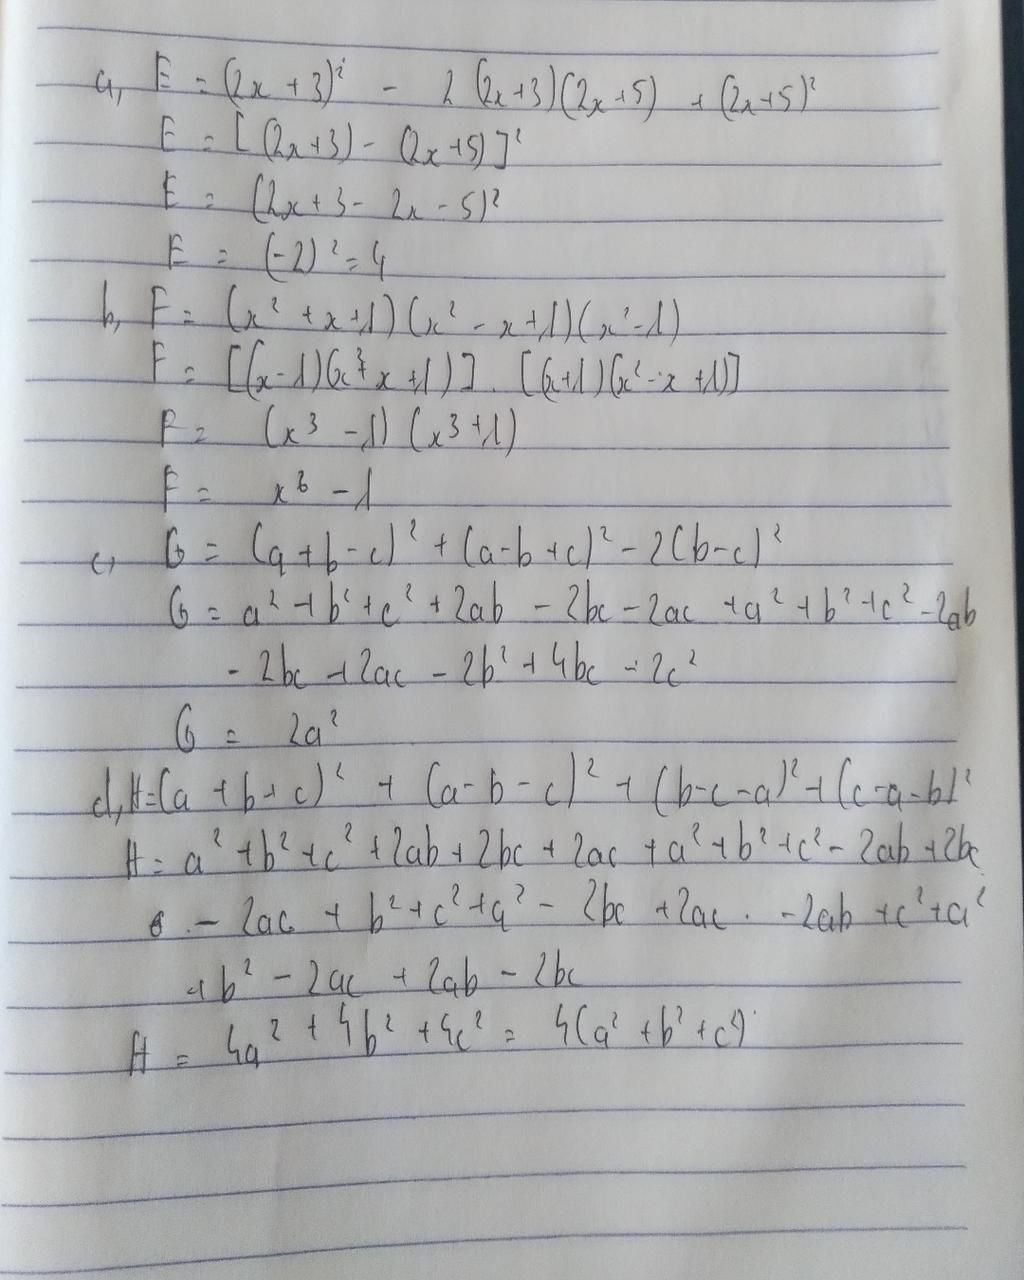 a, E = (2x + 3)² - 2 (2x+3)(2x+5) + (2x+5)²
E = [(2x+3) - (2x+5)]²
E = (2x+3 - 2x - 5)²
E = (-2)² = 4
b, F = (x² + x+1)(x² - x+1)(x²-1)
F = [(x-1)(x²+x+1)] . [(x+1)(x²-x+1)]
F = (x³ -1) (x³+1)
F = x⁶ - 1
c, G = (a+b-c)² + (a-b+c)² - 2(b-c)²
G = a² + b² + c² + 2ab - 2bc - 2ac + a² + b² + c² - 2ab
- 2bc + 2ac - 2b² + 4bc - 2c²
G = 2a²
d, H = (a + b + c)² + (a-b-c)² + (b-c-a)² + (c-a-b)²
H = a² + b² + c² + 2ab + 2bc + 2ac + a² + b² + c² - 2ab + 2bc
- 2ac + b² + c² + a² - 2bc + 2ac - 2ab + c² + a²
+ b² - 2ac + 2ab - 2bc
H = 4a² + 4b² + 4c² = 4(a² + b² + c²)